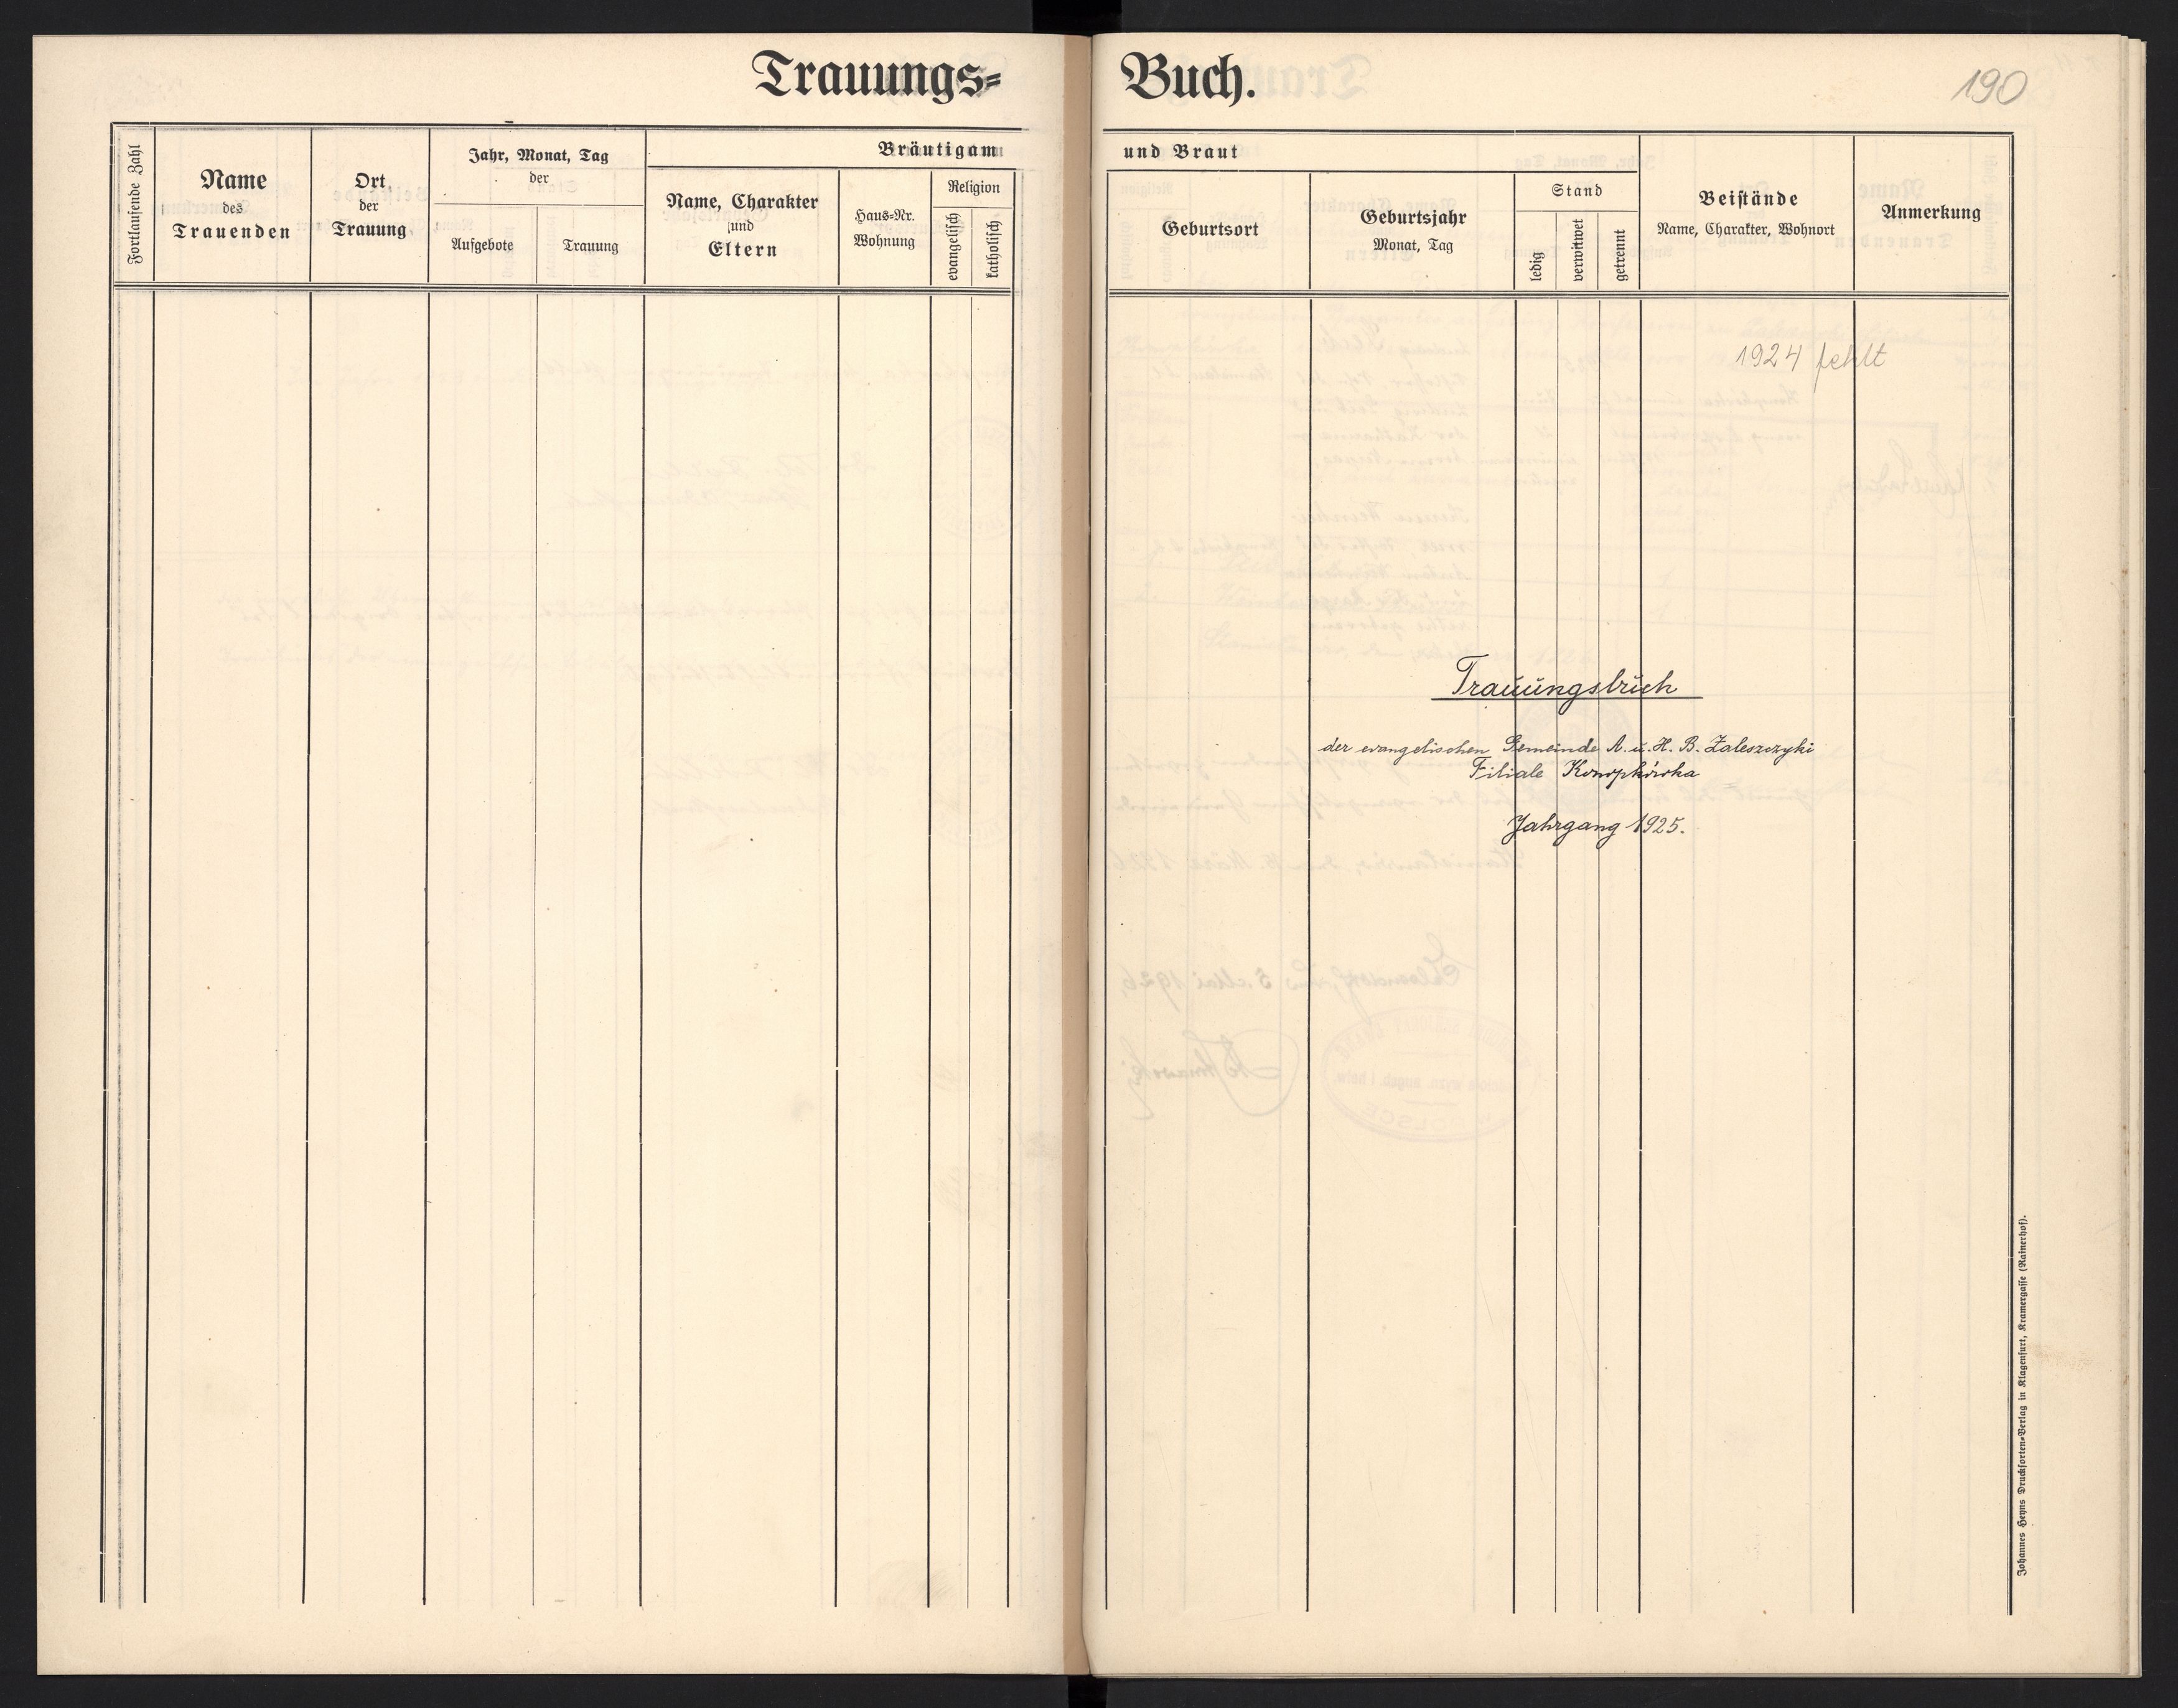 Trauungs=
Buch.
190
Fortlaufende Zahl
Name
des
Trauenden
Ort
der
Trauung
Jahr, Monat, Tag
der
Aufgebote
Trauung
Bräutigam
und Braut
Name, Charakter
und
Eltern
Haus=Nr.
Wohnung
Religion
evangelisch
katholisch
Geburtsort
Geburtsjahr
Monat, Tag
Stand
ledig
verwitwet
getrennt
Beistände
Name, Charakter, Wohnort
Anmerkung
1924 fehlt
Trauungsbuch
der evangelischen Gemeinde A. u. H. B. Zaleszczyki
Filiale Konopkówka
Jahrgang 1925.
Johannes Heyns Drucksorten=Verlag in Klagenfurt, Kramergasse (Rainerhof).